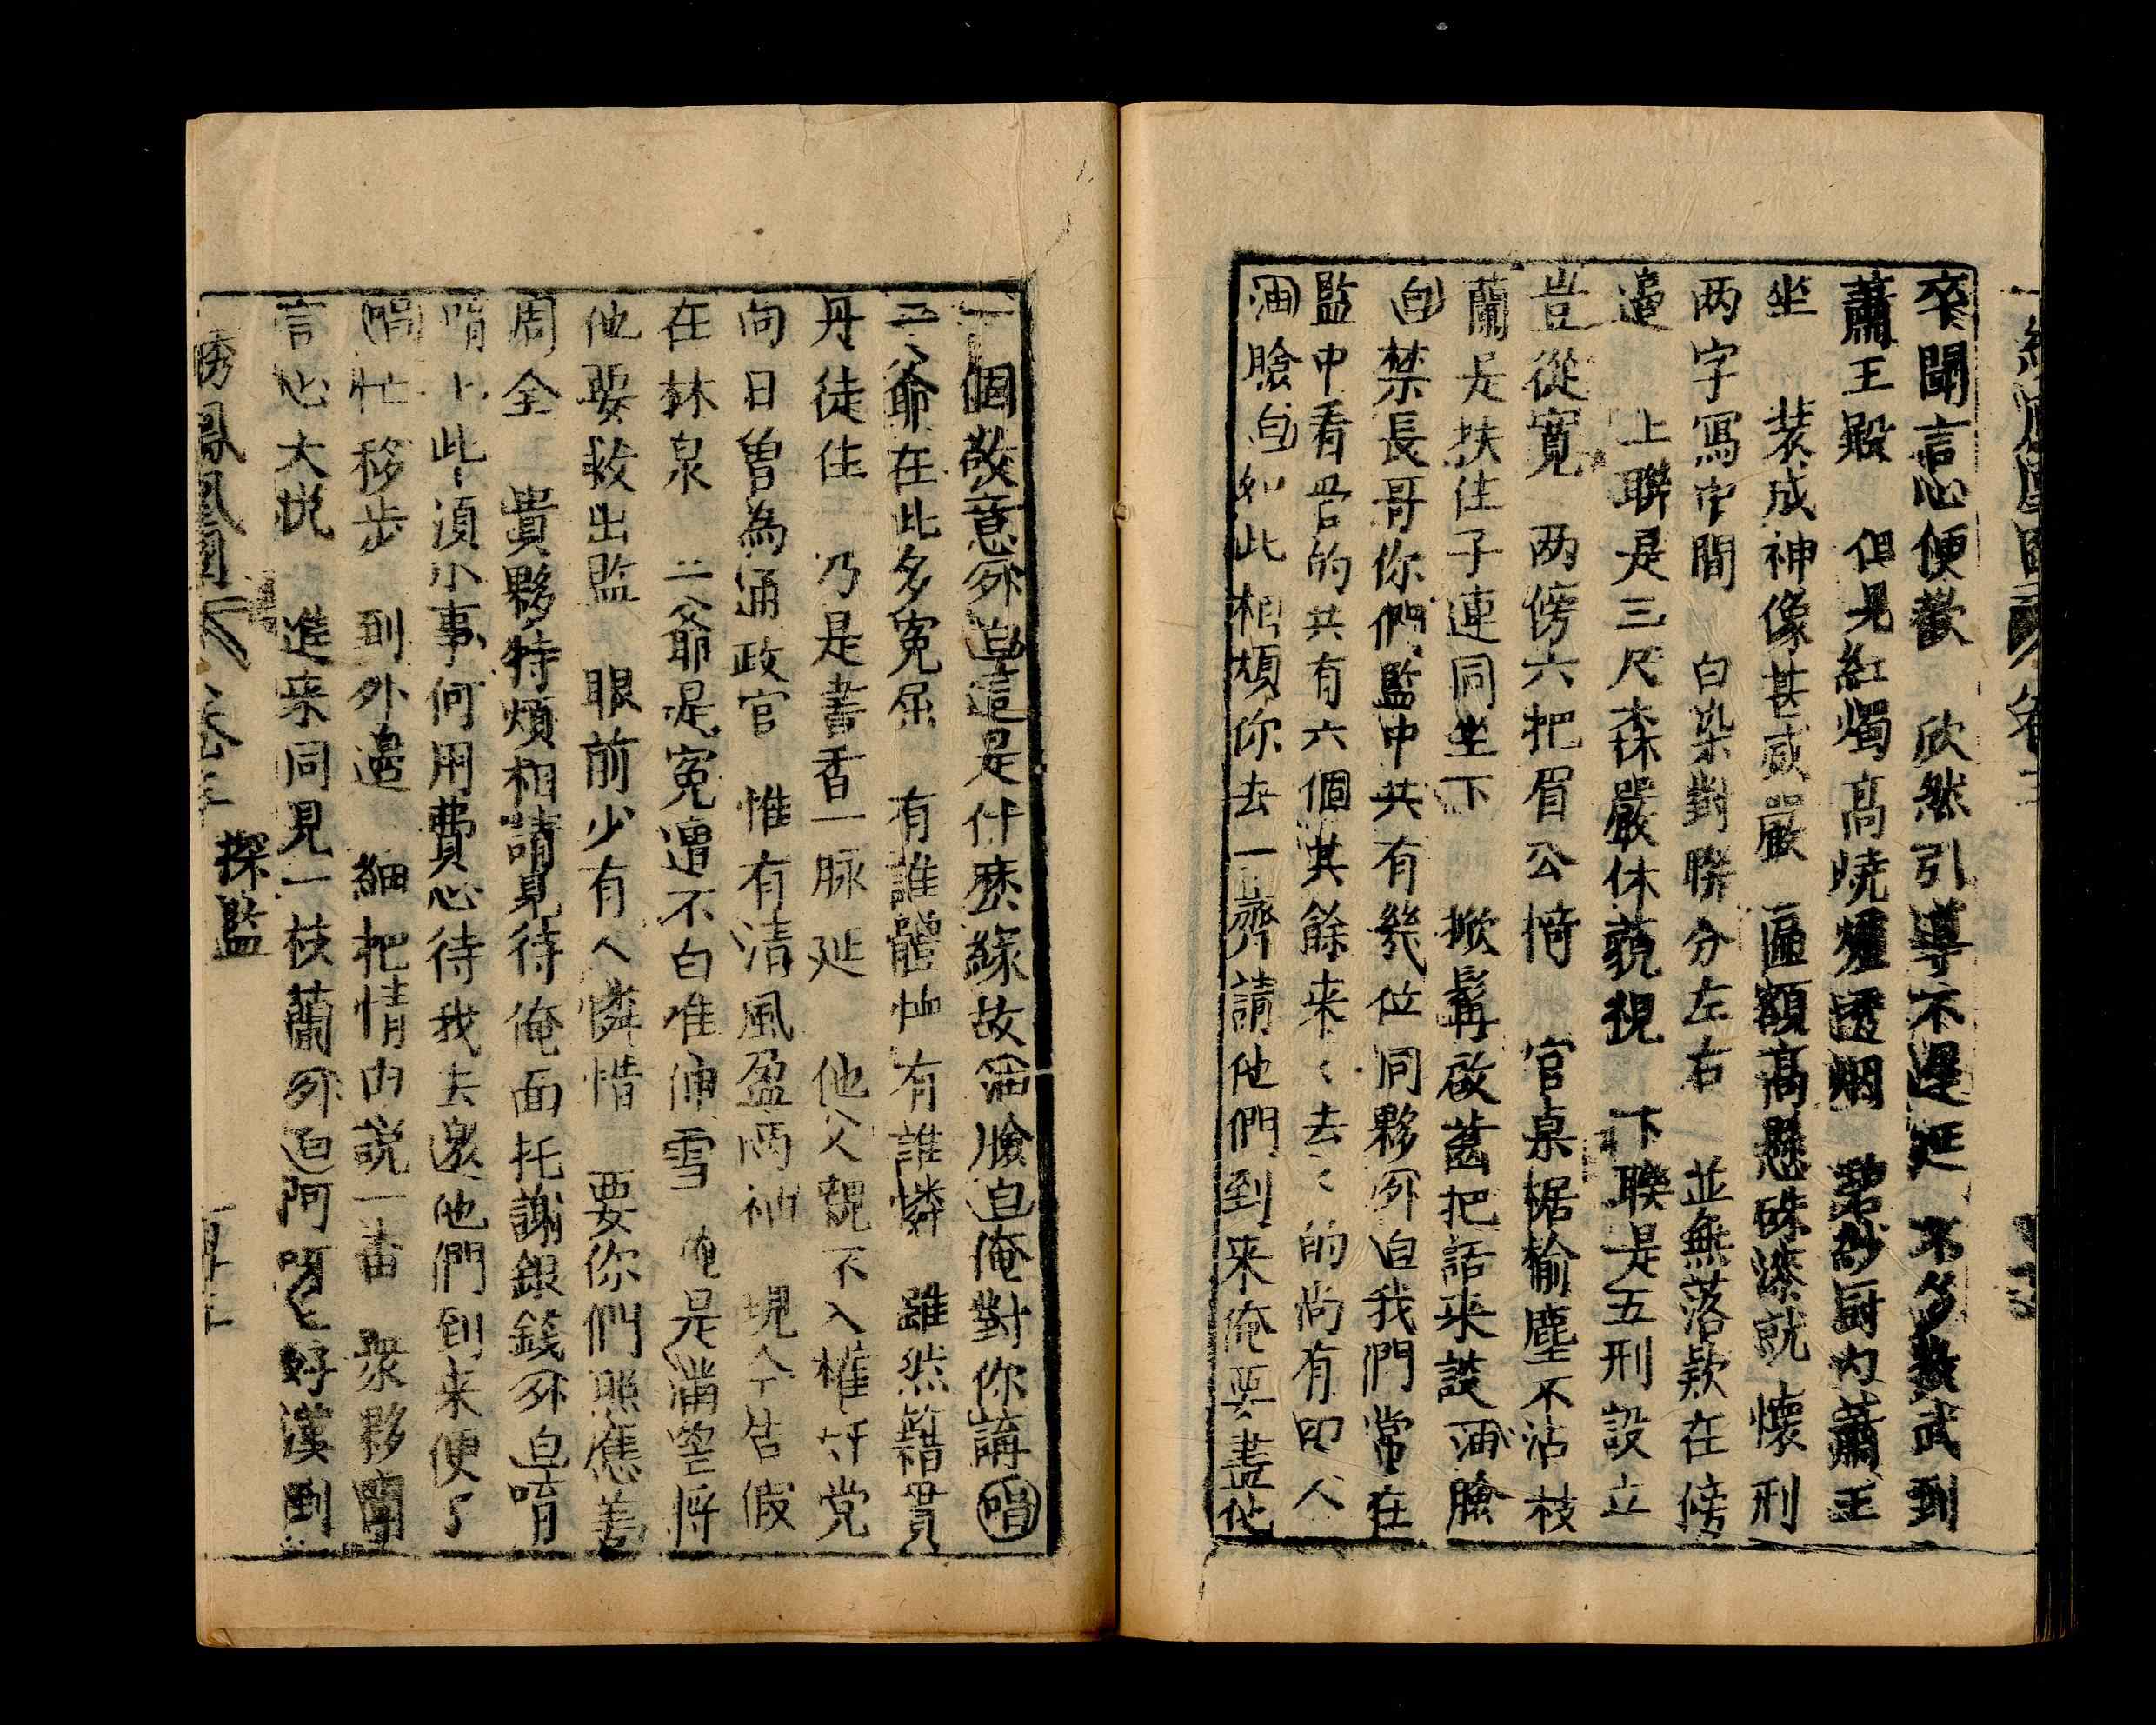 卒聞言心便歡　欣然引導不遲延　不多數武到
蕭王殿　但見紅燭高燒爐透烟　碧紗厨內蕭王
坐　裝成神像甚威嚴　匾額高懸硃漆就　懷刑
两字寫中間　白染對聯分左右　並無落欵在傍
邉　上聯是三尺森嚴休藐視　下聯是五刑設立
豈從寬　两傍六把眉公椅　官桌椐榆塵不沾枝
蘭是扶住子連同坐下　掀髯啟齒把話来談油臉
白禁長哥你們監中共有幾位同夥外白我們常在
監中看営的共有六個其餘来〻去〻的尚有四人
油臉白如此相煩你去一齊請他們到来俺要盡他
一個敬意外白這是什麽緣故油臉白俺對你講唱
二爺在此多寃屈　有誰體恤有誰憐　雖然籍貫
丹徒住　乃是書香一脉延　他父親不入權奸党
向日曾為通政官　惟有清風盈两袖　現今告假
在林泉　二爺是寃遭不白难伸雪　俺是滿望将
他要救出監　眼前少有人憐惜　要你們照應善
周全　貴夥特煩相請見待俺面托謝銀錢外白唷
唷卜此〻湏小事何用費心待我去邀他們到来便了
唱忙移步　到外邉　細把情由説一番　衆夥聞
言心大悦　進来同見一枝蘭外白阿呀〻好漢到
綉鳳凰圖　卷三　探監